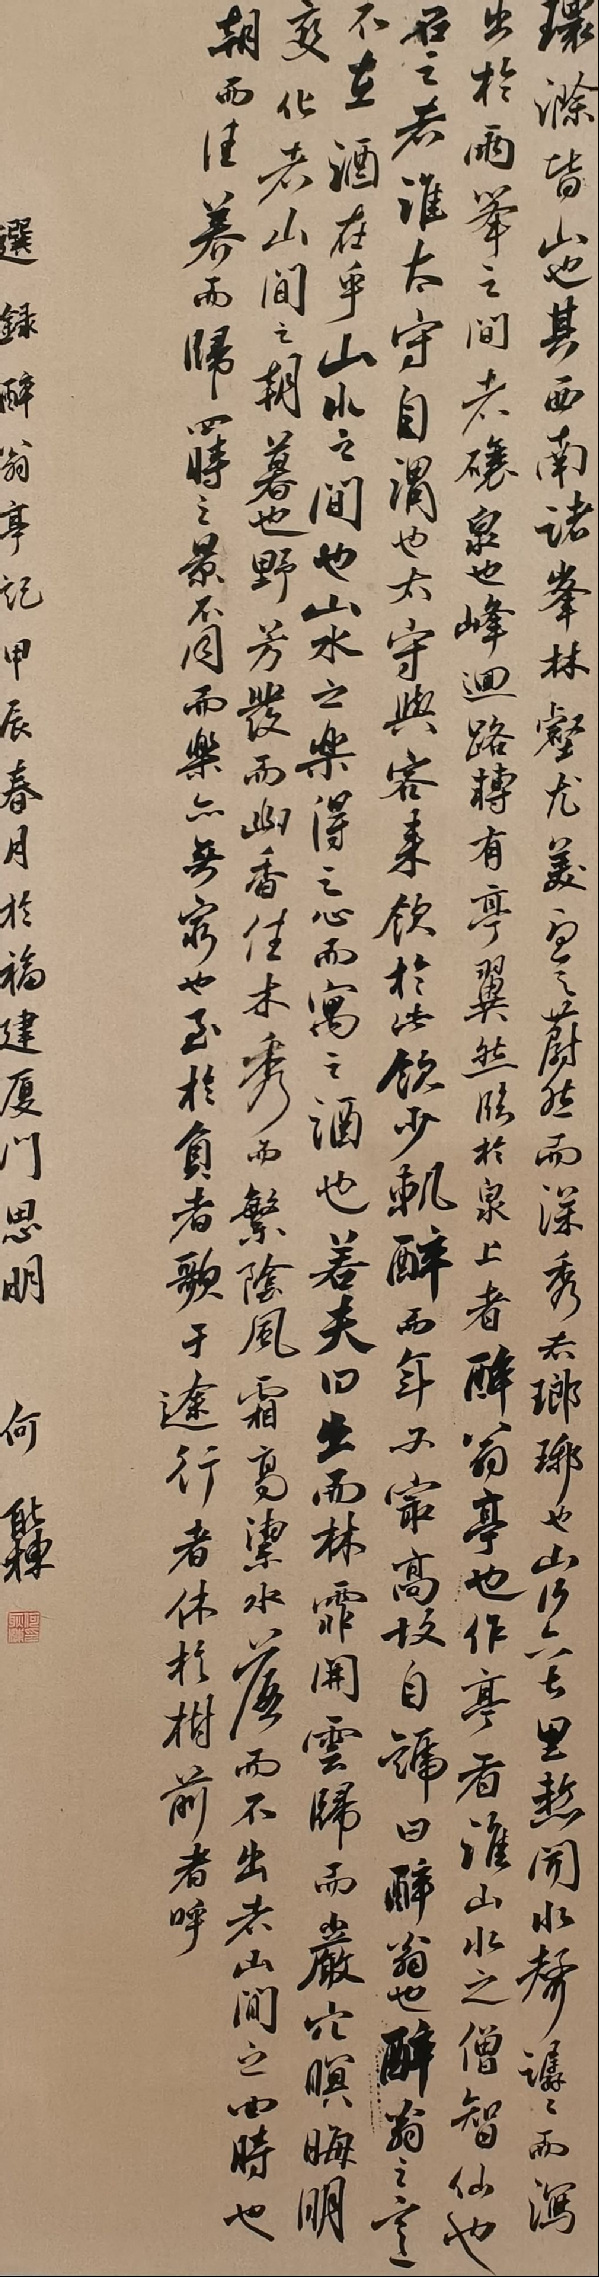 環滁皆山也其西南諸峯林壑尤美望之蔚然而深秀者瑯琊也山行六七里漸聞水聲潺〻而瀉
出於兩峯之間者釀泉也峰迴路轉有亭翼然臨於泉上者醉翁亭也作亭者誰山水之僧智仙也
名之者誰太守自謂也太守與客來飲於此飲少輒醉而年又最高故自號曰醉翁也醉翁之意
不在酒在乎山水之間也山水之樂得之心而寓之酒也若夫日出而林霏開雲歸而巖穴暝晦明
變化者山間之朝暮也野芳發而幽香佳木秀而繁陰風霜高潔水落而不出者山間之四時也
朝而往暮而歸四時之景不同而樂亦無窮也至於負者歌于途行者休於樹前者呼
選録醉翁亭記甲辰春月於福建厦门思明 何